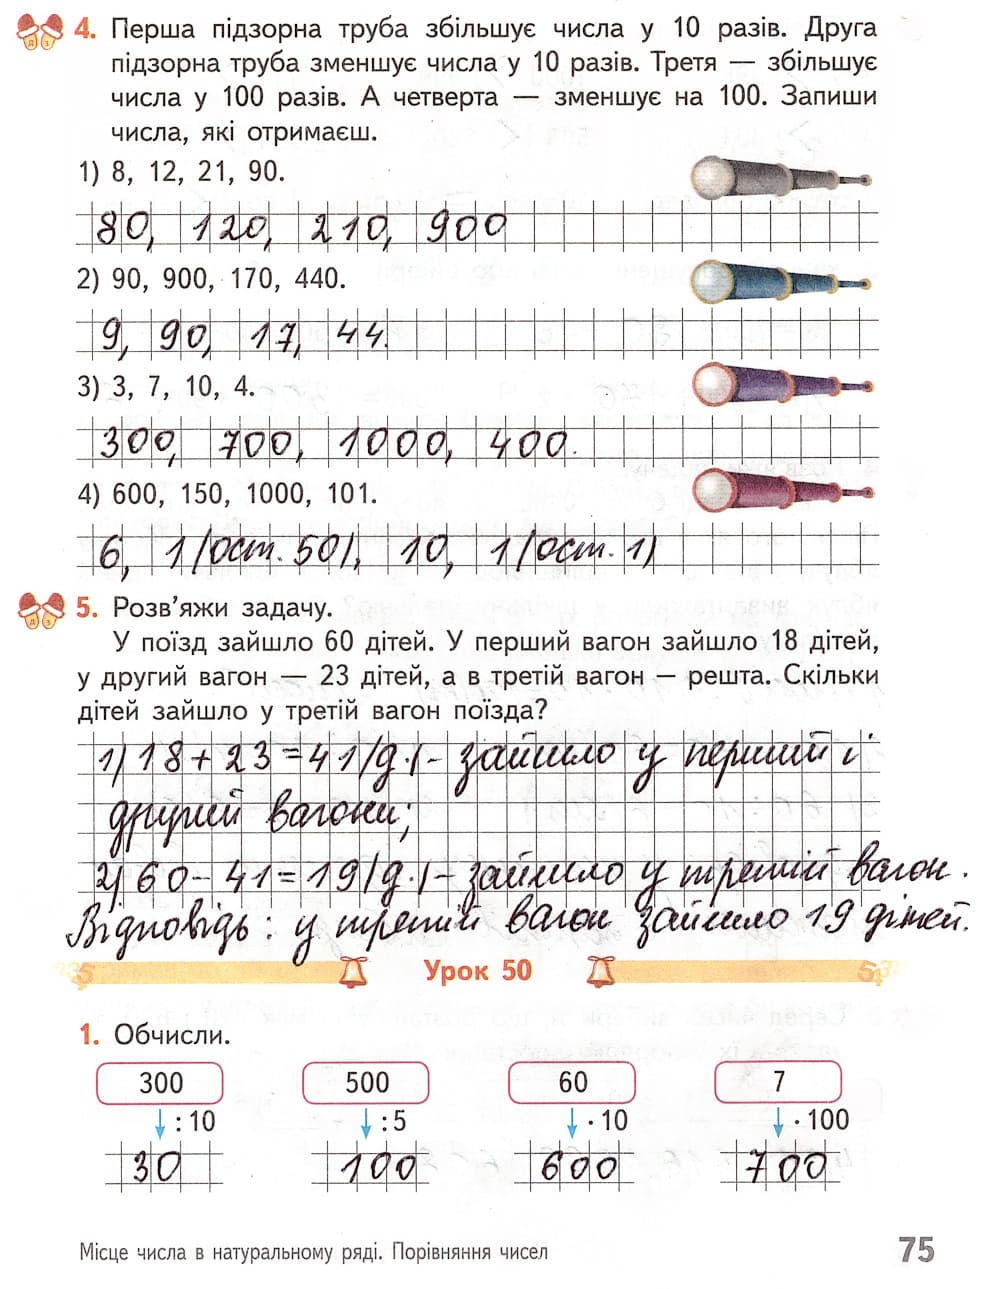 4. Перша підзорна труба збільшує числа у 10 разів. Друга
підзорна труба зменшує числа у 10 разів. Третя — збільшує
числа у 100 разів. А четверта — зменшує на 100. Запиши
числа, які отримаєш.
1) 8, 12, 21, 90.
80, 120, 210, 900
2) 90, 900, 170, 440.
9, 90, 17, 44.
3) 3, 7, 10, 4.
300, 700, 1000, 400.
4) 600, 150, 1000, 101.
6, 1 (ост. 50), 10, 1 (ост. 1)
5. Розв’яжи задачу.
У поїзд зайшло 60 дітей. У перший вагон зайшло 18 дітей,
у другий вагон — 23 дітей, а в третій вагон — решта. Скільки
дітей зайшло у третій вагон поїзда?
1) 18 + 23 = 41 (д.) - зайшло у перший і
другий вагони;
2) 60 - 41 = 19 (д.) - зайшло у третій вагон.
Відповідь: у третій вагон зайшло 19 дітей.
Урок 50
1. Обчисли.
300 500 60 7
: 10 : 5 · 10 · 100
30 100 600 700
Місце числа в натуральному ряді. Порівняння чисел 75